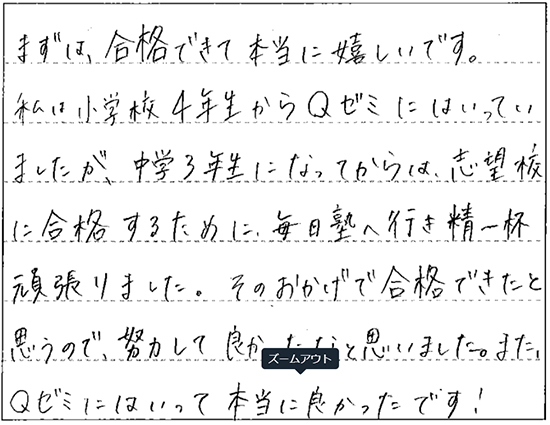 まずは、合格できて本当に嬉しいです。
私は小学校4年生からQゼミにはいってい
ましたが、中学3年生になってからは、志望校
に合格するために、毎日塾へ行き精一杯
頑張りました。そのおかげで合格できたと
思うので、努力して良かったなと思いました。また、
ズームアウト
Qゼミにはいって本当に良かったです!